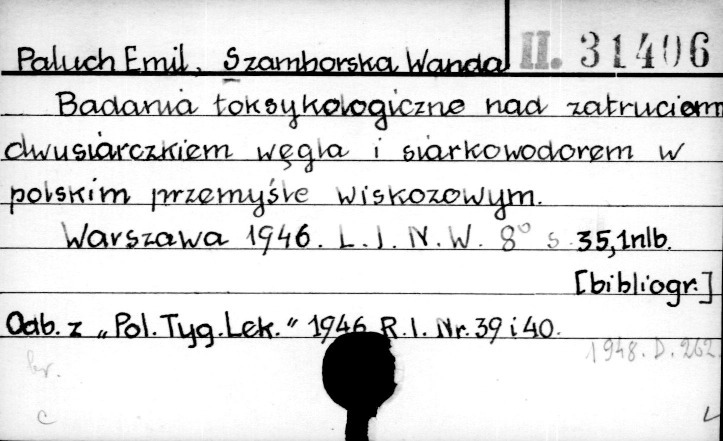 Paluch Emil, Szamborska Wanda II. 31406
Badania toksykologiczne nad zatruciem
dwusiarczkiem węgla i siarkowodorem w
polskim przemyśle wiskozowym.
Warszawa 1946. L.I.N.W. 8° s. 35,1nlb.
[bibliogr.]
Odb. z „Pol. Tyg. Lek." 1946 R.I. Nr. 39 i 40.
1948. D. 262.
br.
c